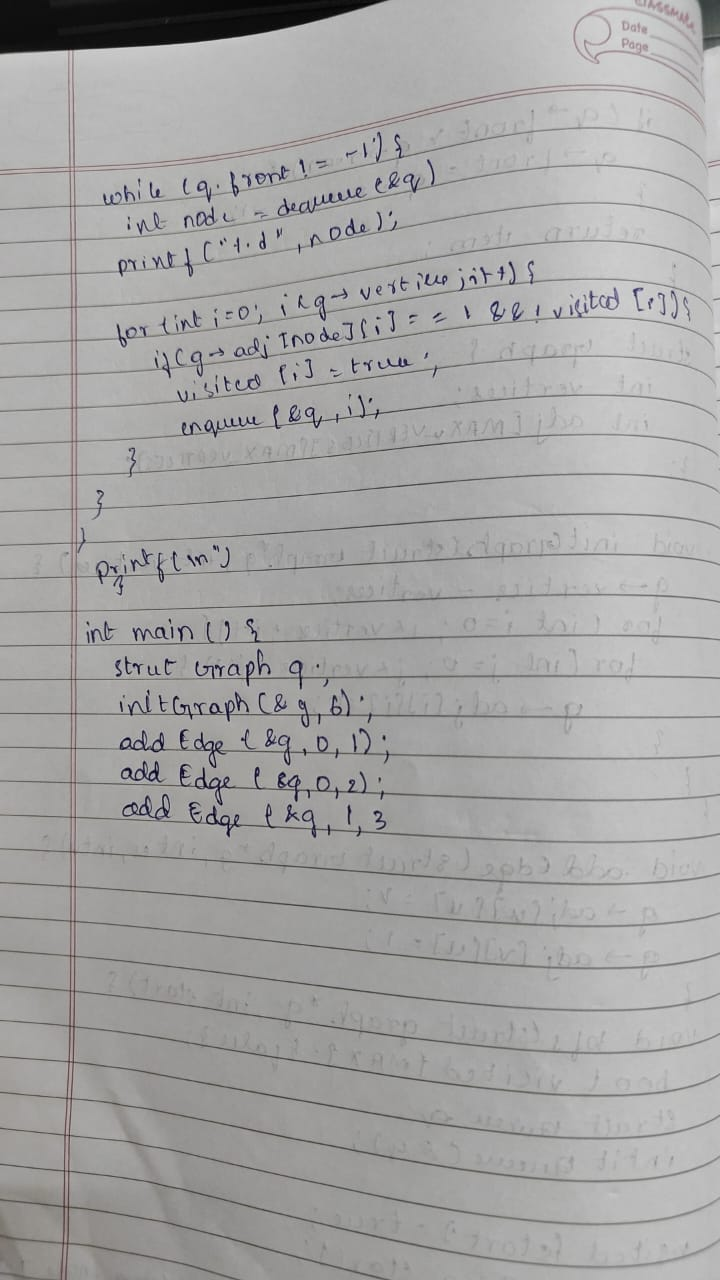 CLASSMATE
Date
Page
while (q.front != -1) {
int node = dequeue (&q)
printf ("%d", node);
for (int i=0; i<g→ vertices; i++) {
if (g→ adj [node][i] == 1 && ! visited [i]) {
visited [i] = true;
enqueue (&q, i);
}
}
}
printf("\n")
}
int main () {
strut Graph g;
initGraph (& g, 6);
add Edge (&g, 0, 1);
add Edge (&g, 0, 2);
add Edge (&g, 1, 3